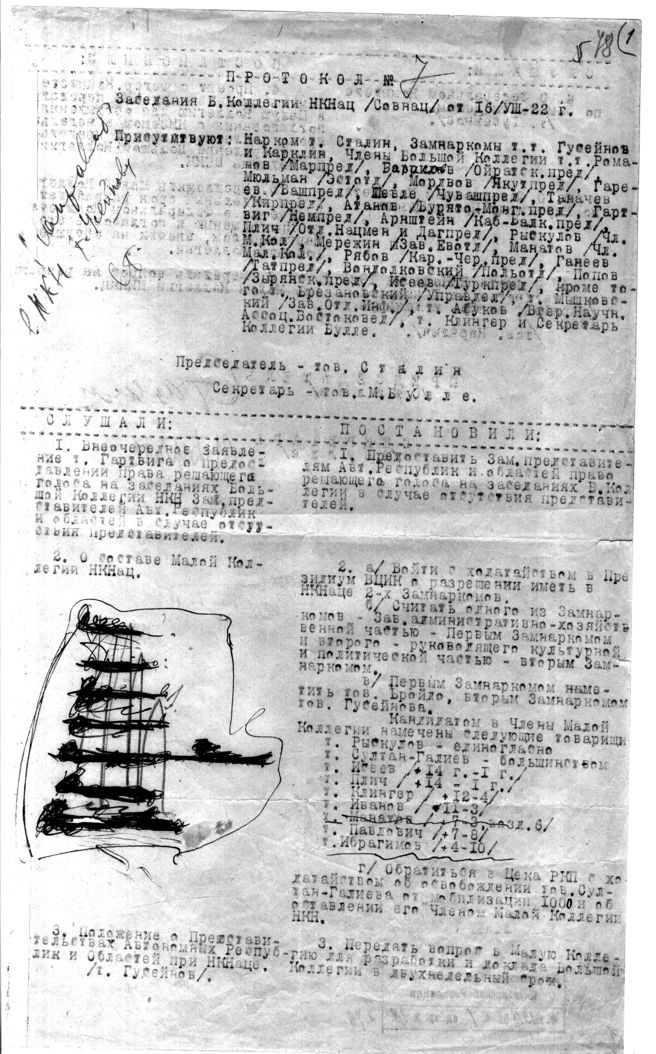 578 (1
П Р О Т О К О Л № 7
Заседания Б.Коллегии НКНац /Совнац/ от 16/УШ-22 г.
Присутствуют: Нарком т. Сталин, Замнаркомы т.т. Гусейнов
и Карклин, Члены Большой Коллегии т.т. Рома-
нов /Марпред/, /Ойратск.пред/,
Мюльман /Эстотд/, Мордвов /Якутпред/, Гаре-
ев /Башпред/, /Чувашпред/, Таначев
/Кирпред/, Атанов /Бурято-Монг.пред/, Гарт-
виг /Немпред/, Арнштейн /Каб-Балк.пред/,
Плич /Отд.Нацмен и Дагпред/, Рыскулов /Чл.
М.Кол/, Мережин /Зав.Евотд/, Манатов /Чл.
Мал.Кол./, Рябов /Кар.-Чер.пред/, Ганеев
/Татпред/, Вондолковский /Польотд/, Попов
/Зырянск.пред/, Исеев /Туркпред/, кроме то-
го т. Брезановский /Управдел/ т. Машковс-
кий /Зав.Отд.Инф./, т. /Всер.Научн.
Ассоц.Востоковед/, т. Клингер и Секретарь
Коллегии Булле.
Председатель - тов. С т а л и н
Секретарь - тов. М.Б у л л е.
С Л У Ш А Л И:
1. Внеочередное заявле-
ние т. Гартвига о предос-
тавлении Права решающего
голоса на заседаниях Боль-
шой Коллегии НКН Зам.пред-
ставителей Авт.Республик
и областей в случае отсут-
ствия Представителей.
2. О составе Малой Кол-
легии НКНац.
3. Положение о Представи-
тельствах Автономных Респуб-
лик и Областей при НКНаце.
/т. Гусейнов/.
П О С Т А Н О В И Л И:
1. Предоставить Зам.представите-
лям Авт.Республик и областей право
решающего голоса на заседаниях Б.Кол
легии в случае отсутствия представи-
телей.
2. а/ Войти с ходатайством в Пре
зидиум ВЦИК о разрешении иметь в
НКНаце 2-х Замнаркомов.
б/ Считать одного из Замнар-
комов - Зав.административно-хозяйств
венной частью - Первым Замнаркомом
и второго - руководящего культурной
и политической частью - вторым Зам-
наркомом.
в/ Первым Замнаркомом наме-
тить тов. Бройдо, вторым Замнаркомом
тов. Гусейнова.
Кандидатом в Члены Малой
Коллегии намечены следующие товарищи
т. Рыскулов - единогласно
т. Султан-Галиев - большинством
т. Исеев /+14 г.-1 г./
т. Плич /+14 - 1 г./
т. Клингер /+12-4/
т. Иванов +11-3/
т. Манатов /+7-3,возд.6/
т. Павлович /+7-8/
т.Ибрагимов /+4-10/
г/ Обратиться в Цека РКП с хо-
датайством об освобождении тов.Сул-
тан-Галиева от мобилизации 1000 и об
оставлении его Членом Малой Коллегии
НКН.
3. Передать вопрос в Малую Колле-
гию для разработки и доклада Большой
Коллегии в двухнедельный срок.